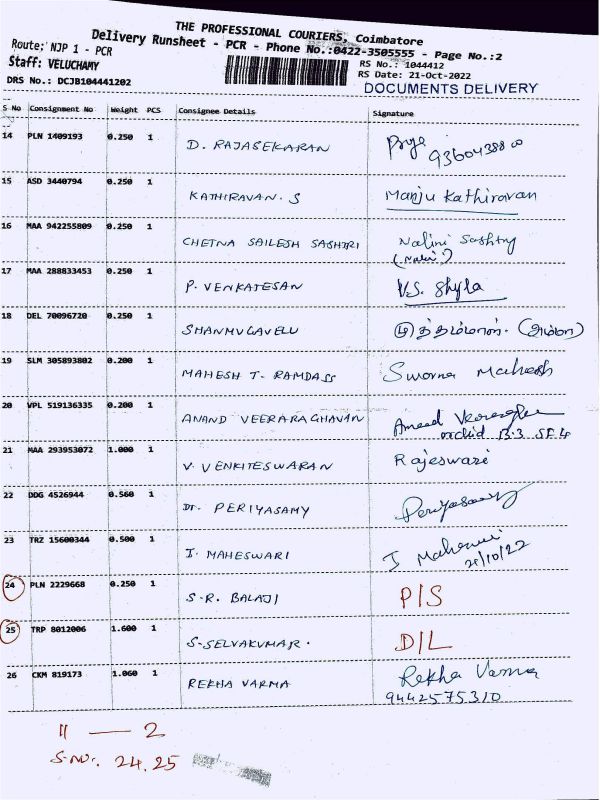 THE PROFESSIONAL COURIERS, Coimbatore
Delivery Runsheet - PCR - Phone No.:0422-3505555 - Page No.:2
Route; NJP 1 - PCR
Staff: VELUCHAMY
RS No.: 1044412
DRS No.: DCJB104441202
RS Date: 21-Oct-2022
DOCUMENTS DELIVERY
S No Consignment No Weight PCS Consignee Details Signature
14 PLN 1409193 0.250 1 D. RAJASEKARAN
15 ASD 3440794 0.250 1 KATHIRAVAN. S Manju Kathiravan
16 MAA 942255809 0.250 1 CHETNA SAILESH SASHTRI Nalini Sashtry
17 MAA 288833453 0.250 1 P. VENKATESAN V.S. Shyla
18 DEL 70096720 0.250 1 SHANMUGAVELU
19 SLM 305893802 0.200 1 MAHESH T. RAMDASS Sworna Mahesh
20 VPL 519136335 0.200 1 ANAND VEERARAGHAVAN
orchid B.3 SF.4
21 MAA 293953072 1.000 1 V. VENKITESWARAN Rajeswari
22 DDG 4526944 0.560 1 Dr. PERIYASAMY Periyasamy
23 TRZ 15600344 0.500 1 I. MAHESWARI
24 PLN 2229668 0.250 1 S.R. BALAJI P/S
25 TRP 8012006 1.600 1 S-SELVAKUMAR. D/L
26 CKM 819173 1.060 1 REKHA VARMA Rekha Varma
9442575310
11 — 2
S.NO:. 24.25